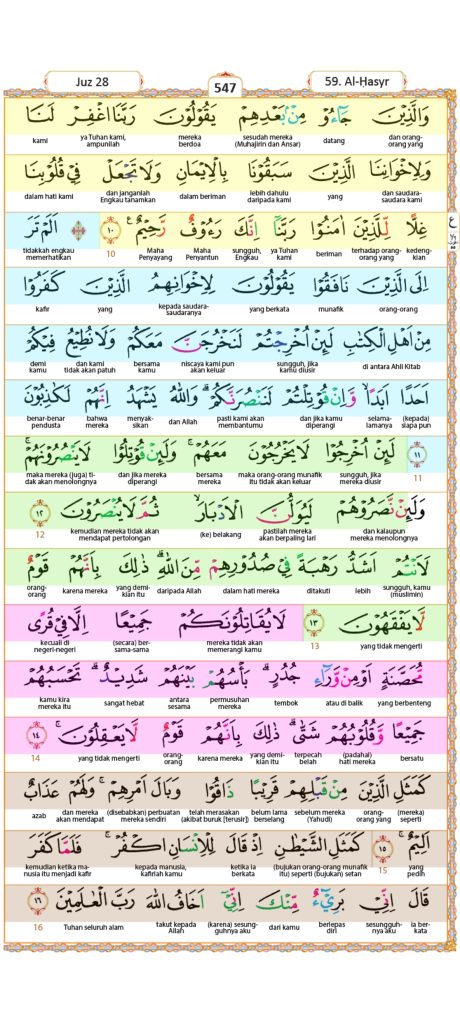 Juz 28
547
59. Al-Ḥasyr
وَالَّذِيْنَ جَاۤءُوْ مِنْۢ بَعْدِهِمْ يَقُوْلُوْنَ رَبَّنَا اغْفِرْ لَنَا
dan orang-orang yang datang sesudah mereka (Muhajirin dan Ansar) mereka berdoa ya Tuhan kami, ampunilah kami
وَلِاِخْوَانِنَا الَّذِيْنَ سَبَقُوْنَا بِالْاِيْمَانِ وَلَا تَجْعَلْ فِيْ قُلُوْبِنَا
dan saudara-saudara kami yang lebih dahulu daripada kami dalam beriman dan janganlah Engkau tanamkan dalam hati kami
غِلًّا لِّلَّذِيْنَ اٰمَنُوْا رَبَّنَآ اِنَّكَ رَءُوْفٌ رَّحِيْمٌ ۚ ١٠ ۞ اَلَمْ تَرَ
kedeng-kian terhadap orang-orang yang beriman ya Tuhan kami sungguh, Engkau Maha Penyantun Maha Penyayang 10 tidakkah engkau memerhatikan
اِلَى الَّذِيْنَ نَافَقُوْا يَقُوْلُوْنَ لِاِخْوَانِهِمُ الَّذِيْنَ كَفَرُوْا
orang-orang munafik yang berkata kepada saudara-saudaranya yang kafir
مِنْ اَهْلِ الْكِتٰبِ لَىِٕنْ اُخْرِجْتُمْ لَنَخْرُجَنَّ مَعَكُمْ وَلَا نُطِيْعُ فِيْكُمْ
di antara Ahli Kitab sungguh, jika kamu diusir niscaya kami pun akan keluar bersama kamu dan kami tidak akan patuh demi kamu
اَحَدًا اَبَدًاۙ وَّاِنْ قُوْتِلْتُمْ لَنَنْصُرَنَّكُمْۗ وَاللّٰهُ يَشْهَدُ اِنَّهُمْ لَكٰذِبُوْنَ
(kepada) siapa pun selama-lamanya dan jika kamu diperangi pasti kami akan membantumu dan Allah menyak-sikan bahwa mereka benar-benar pendusta
١١ لَىِٕنْ اُخْرِجُوْا لَا يَخْرُجُوْنَ مَعَهُمْۚ وَلَىِٕنْ قُوْتِلُوْا لَا يَنْصُرُوْنَهُمْۚ
11 sungguh, jika mereka diusir maka orang-orang munafik itu tidak akan keluar bersama mereka dan jika mereka diperangi maka mereka (juga) ti-dak akan menolongnya
وَلَىِٕنْ نَّصَرُوْهُمْ لَيُوَلُّنَّ الْاَدْبَارَۙ ثُمَّ لَا يُنْصَرُوْنَ ١٢
dan kalaupun mereka menolongnya pastilah mereka akan berpaling lari (ke) belakang kemudian mereka tidak akan mendapat pertolongan 12
لَاَنْتُمْ اَشَدُّ رَهْبَةً فِيْ صُدُوْرِهِمْ مِّنَ اللّٰهِۗ ذٰلِكَ بِاَنَّهُمْ قَوْمٌ
sungguh, kamu (muslimin) lebih ditakuti dalam hati mereka daripada Allah yang demi-kian itu karena mereka orang-orang
لَّا يَفْقَهُوْنَ ١٣ لَا يُقَاتِلُوْنَكُمْ جَمِيْعًا اِلَّا فِيْ قُرًى
yang tidak mengerti 13 mereka tidak akan memerangi kamu (secara) ber-sama-sama kecuali di negeri-negeri
مُّحَصَّنَةٍ اَوْ مِنْ وَّرَاۤءِ جُدُرٍۗ بَأْسُهُمْ بَيْنَهُمْ شَدِيْدٌۗ تَحْسَبُهُمْ
yang berbenteng atau di balik tembok permusuhan mereka antara sesama sangat hebat kamu kira mereka itu
جَمِيْعًا وَّقُلُوْبُهُمْ شَتّٰىۗ ذٰلِكَ بِاَنَّهُمْ قَوْمٌ لَّا يَعْقِلُوْنَۚ ١٤
bersatu (padahal) hati mereka terpecah belah yang demi-kian itu karena mereka orang-orang yang tidak mengerti 14
كَمَثَلِ الَّذِيْنَ مِنْ قَبْلِهِمْ قَرِيْبًا ذَاقُوْا وَبَالَ اَمْرِهِمْۚ وَلَهُمْ عَذَابٌ
(mereka) seperti orang-orang yang sebelum mereka (Yahudi) belum lama berselang telah merasakan (akibat buruk [terusir]) (disebabkan) perbuatan mereka sendiri dan mereka akan mendapat azab
اَلِيْمٌۚ ١٥ كَمَثَلِ الشَّيْطٰنِ اِذْ قَالَ لِلْاِنْسَانِ اكْفُرْۚ فَلَمَّا كَفَرَ
yang pedih 15 (bujukan orang-orang munafik itu) seperti (bujukan) setan ketika ia berkata kepada manusia, kafirlah kamu kemudian ketika ma-nusia itu menjadi kafir
قَالَ اِنِّيْ بَرِيْۤءٌ مِّنْكَ اِنِّيْٓ اَخَافُ اللّٰهَ رَبَّ الْعٰلَمِيْنَ ١٦
ia ber-kata sesungguh-nya aku berlepas diri dari kamu (karena) sesung-guhnya aku takut kepada Allah Tuhan seluruh alam 16